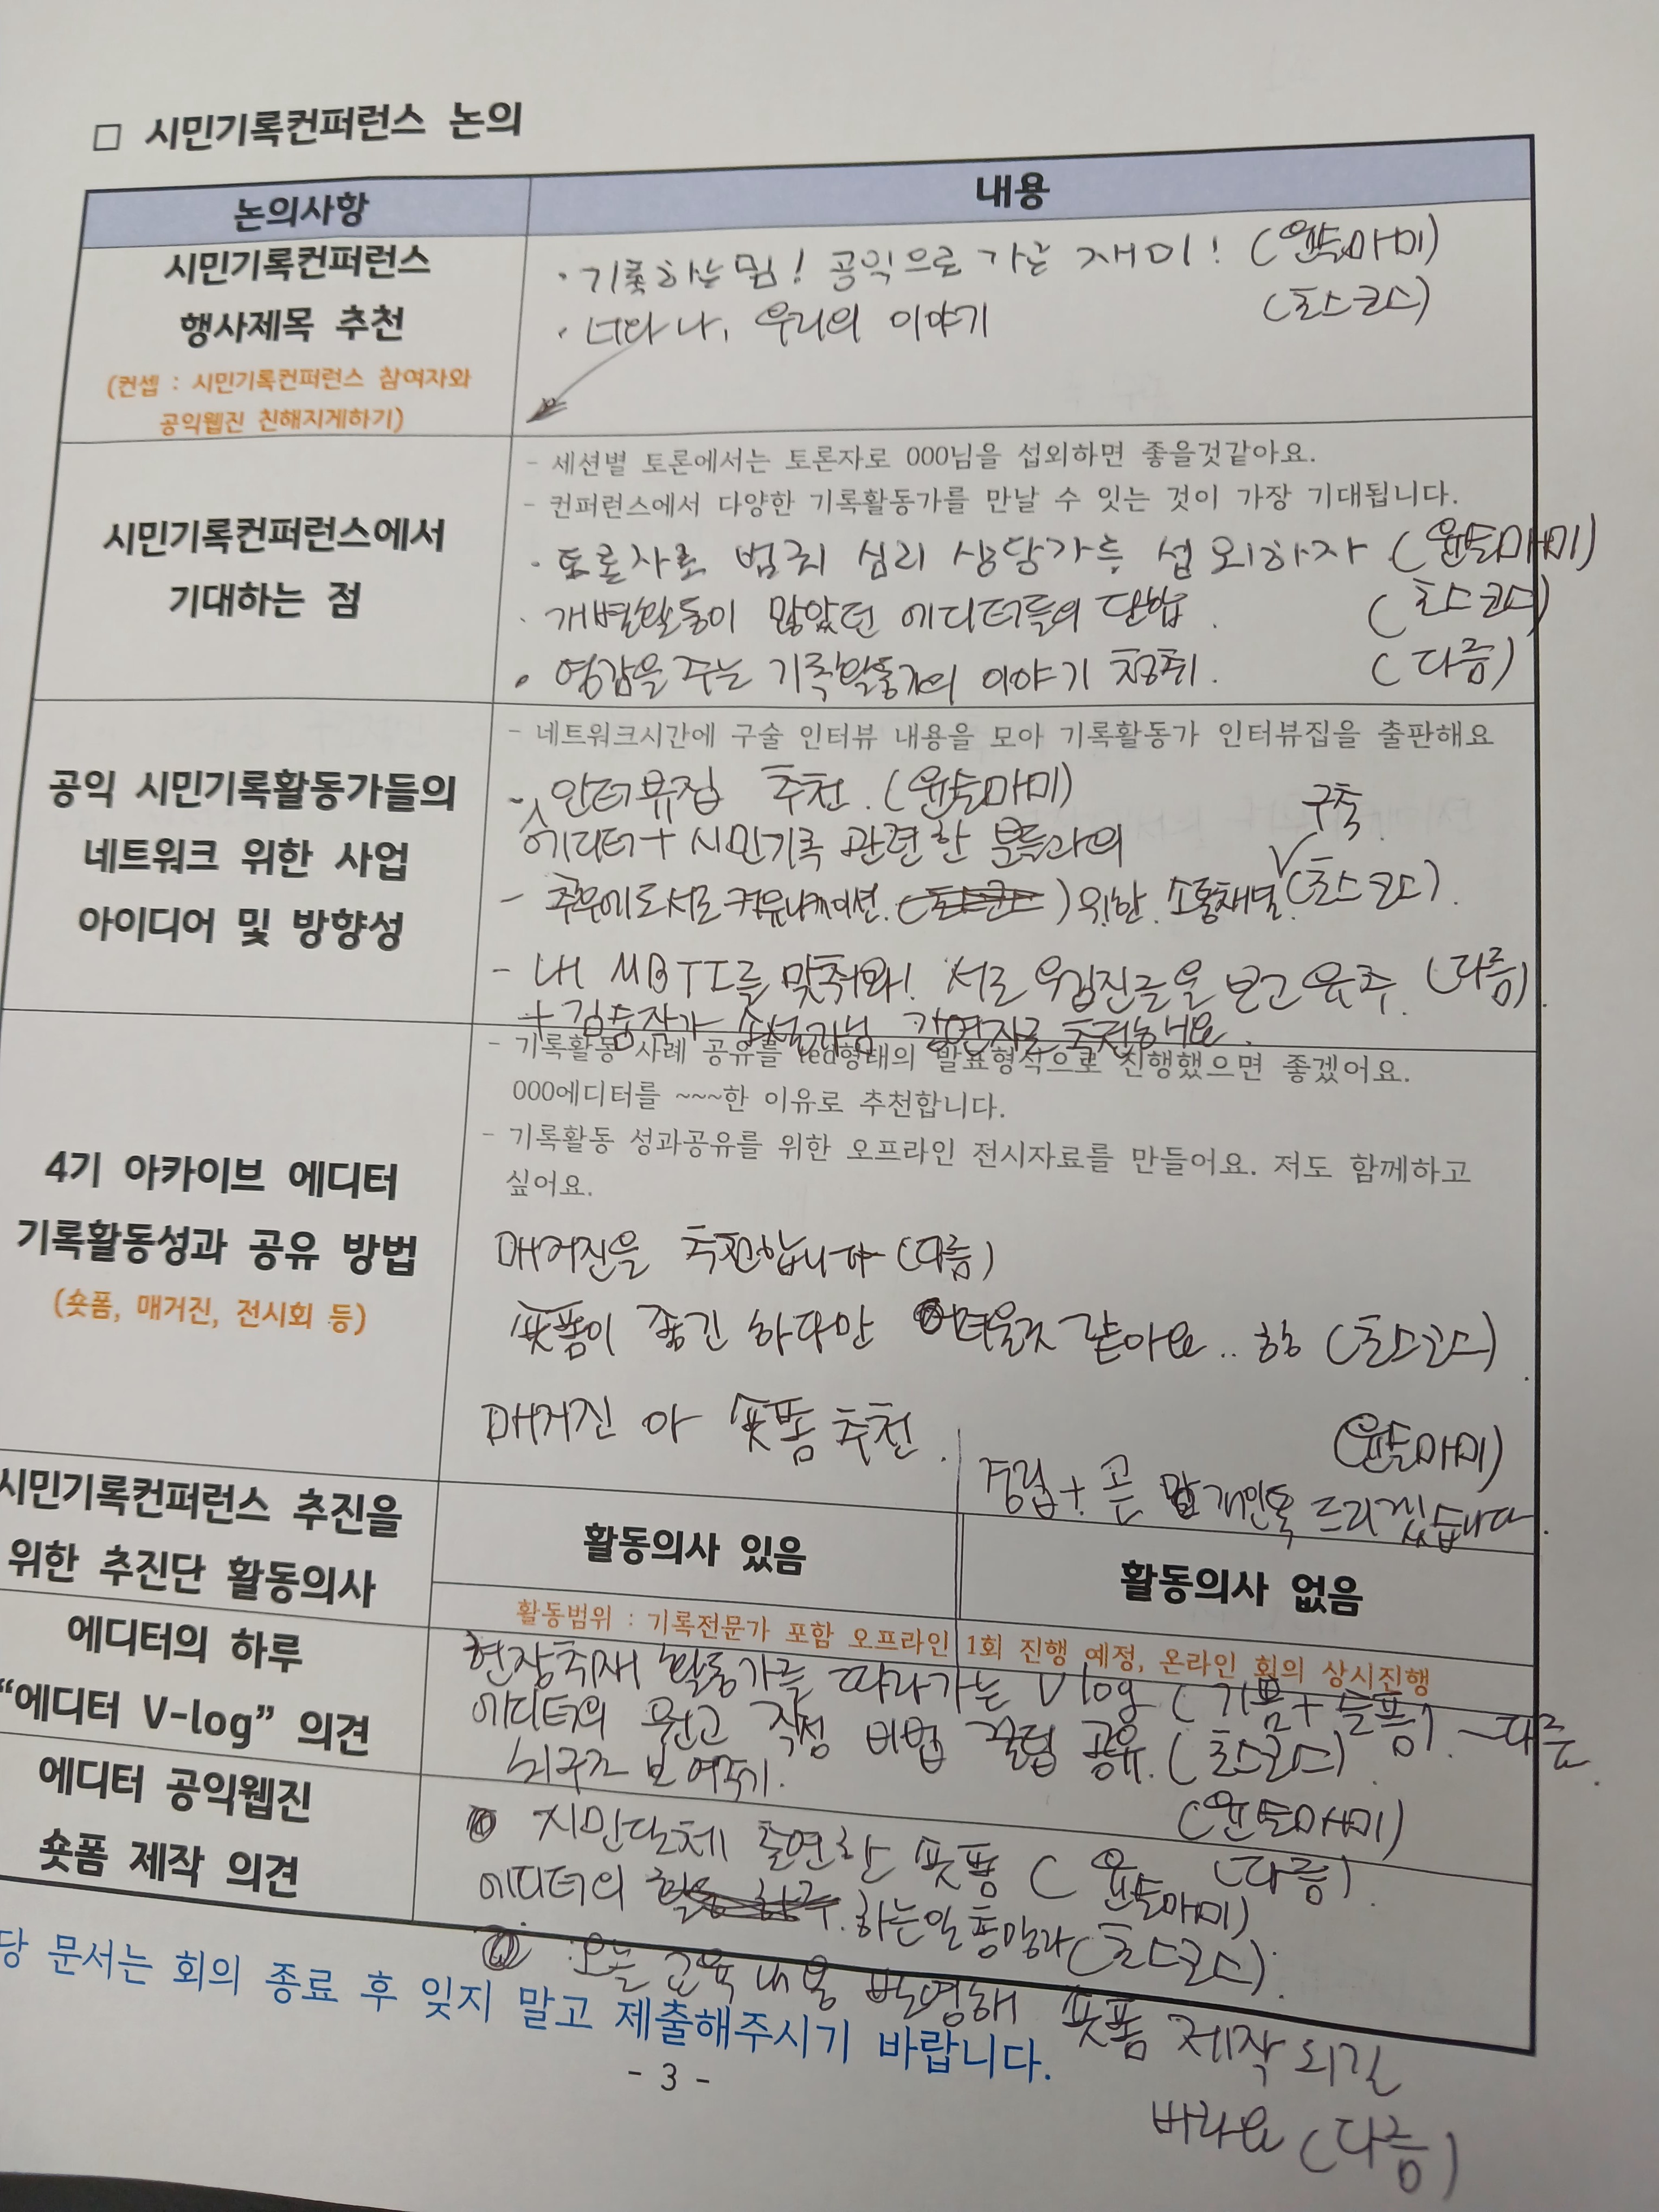 □ 시민기록컨퍼런스 논의
논의사항
내용
시민기록컨퍼런스
행사제목 추천
(컨셉 : 시민기록컨퍼런스 참여자와
공익웹진 친해지게하기)
· 기록하는 덤! 공익으로 가는 재미! (윤토마미)
· 너와 나, 우리의 이야기 (초스코스)
시민기록컨퍼런스에서
기대하는 점
- 세션별 토론에서는 토론자로 000님을 섭외하면 좋을것같아요.
- 컨퍼런스에서 다양한 기록활동가를 만날 수 잇는 것이 가장 기대됩니다.
· 토론자로 범죄 심리 상담가를 섭외하자 (윤토마미)
· 개별활동이 많았던 에디터들의 단합. (초스코스)
· 영감을 주는 기록활동가의 이야기 청취. (다름)
공익 시민기록활동가들의
네트워크 위한 사업
아이디어 및 방향성
- 네트워크시간에 구술 인터뷰 내용을 모아 기록활동가 인터뷰집을 출판해요
- 인터뷰집 추천. (윤토마미)
에디터+시민기록 관련한 분들과의 구축
- 추후에도 서로 커뮤니케이션 위한 소통채널 (초스코스).
- 내 MBTI를 맞춰봐! 서로 웹진글을 보고 유추. (다름)
+ 김동작가 소설가님 강연자로 추천
- 기록활동 사례 공유를 ted형태의 발표형식으로 진행했으면 좋겠어요.
000에디터를 ~~~한 이유로 추천합니다.
- 기록활동 성과공유를 위한 오프라인 전시자료를 만들어요. 저도 함께하고
싶어요.
4기 아카이브 에디터
기록활동성과 공유 방법
(숏폼, 매거진, 전시회 등)
매거진을 추천합니다 (다름)
숏폼이 좋긴 하다만 어려울것 같아요.. (초스코스)
매거진 아 숏폼 추천. (윤토마미)
+ 곧 개인톡 드리겠습니다.
시민기록컨퍼런스 추진을
위한 추진단 활동의사
활동의사 있음
활동의사 없음
활동범위 : 기록전문가 포함 오프라인 1회 진행 예정, 온라인 회의 상시진행
에디터의 하루
“에디터 V-log” 의견
현장취재 활동가를 따라가는 Vlog (기쁨+슬픔). - 다름.
에디터의 원고 작성 비법 꿀팁 공유. (초스코스)
뇌구조 보여주기. (윤토마미)
에디터 공익웹진
숏폼 제작 의견
시민단체 출연한 숏폼 (윤토마미) (다름).
에디터의 하는일 (초스코스).
오늘 교육내용 반영해 숏폼 제작되길
바라요 (다름)
당 문서는 회의 종료 후 잊지 말고 제출해주시기 바랍니다.
- 3 -